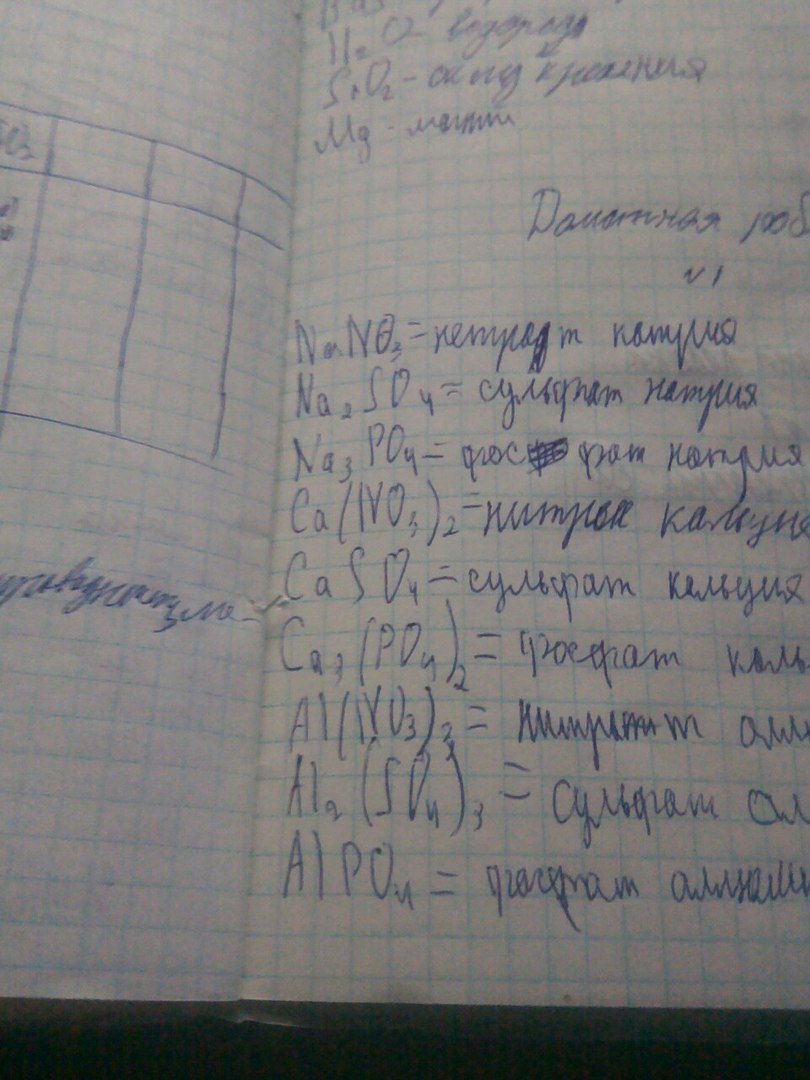 H₂O - водород
SiO₂ - оксид кремния
Mg - магни
Домашная роб
№1
NaNO₃ = нетрат натрия
Na₂SO₄ = сульфат натрия
Na₃PO₄ = фосфат натрия
Ca(NO₃)₂ = нитрат кальцие
CaSO₄ = сульфат кальция
Ca₃(PO₄)₂ = фосфат каль
Al(NO₃)₃ = нитрат алл
Al₂(SO₄)₃ = сульфат ал
AlPO₄ = фосфат аллюми